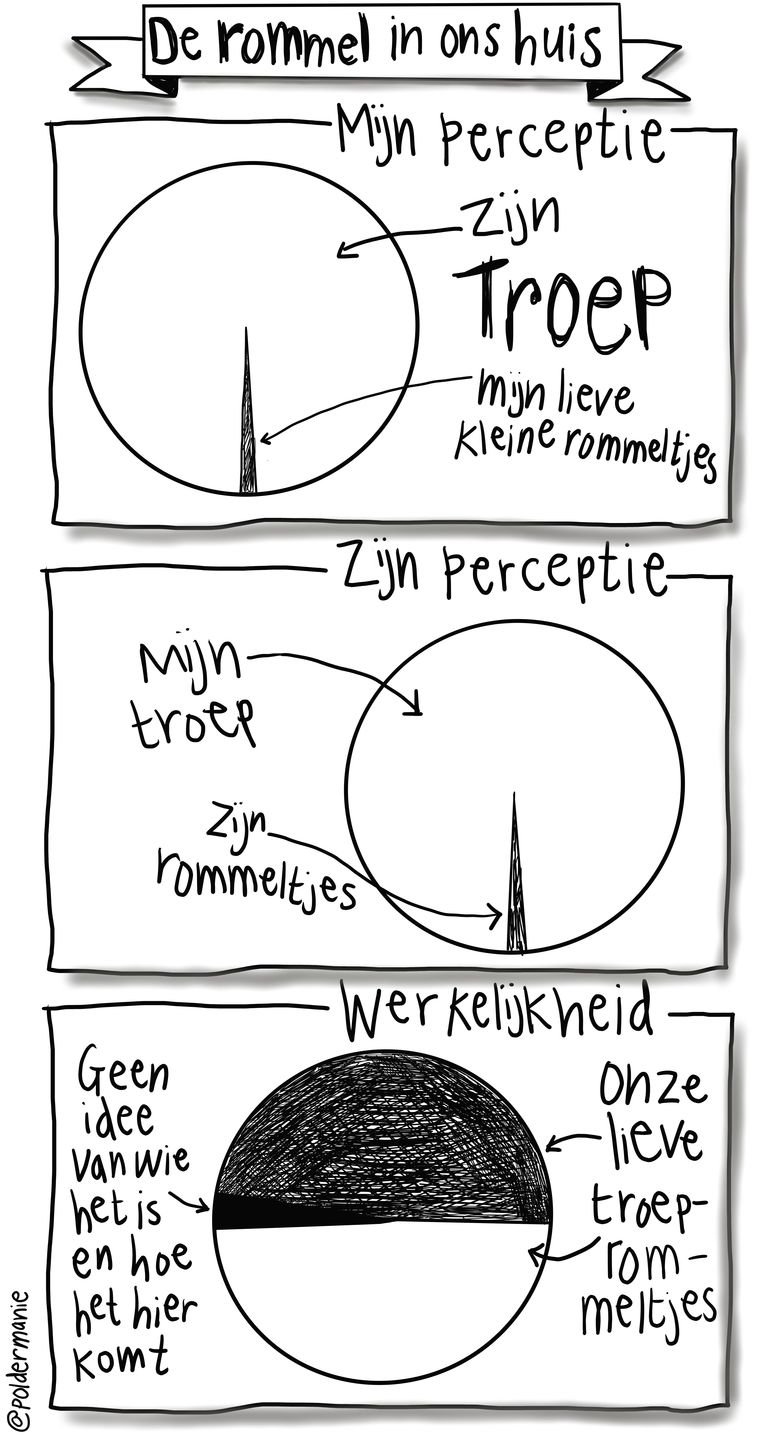 De rommel in ons huis
Mijn perceptie
Zijn
Troep
mijn lieve
kleine rommeltjes
Zijn perceptie
Mijn
troep
Zijn
rommeltjes
Werkelijkheid
Geen
idee
van wie
het is
en hoe
het hier
komt
Onze
lieve
troep-
rom-
meltjes
@poldermanie